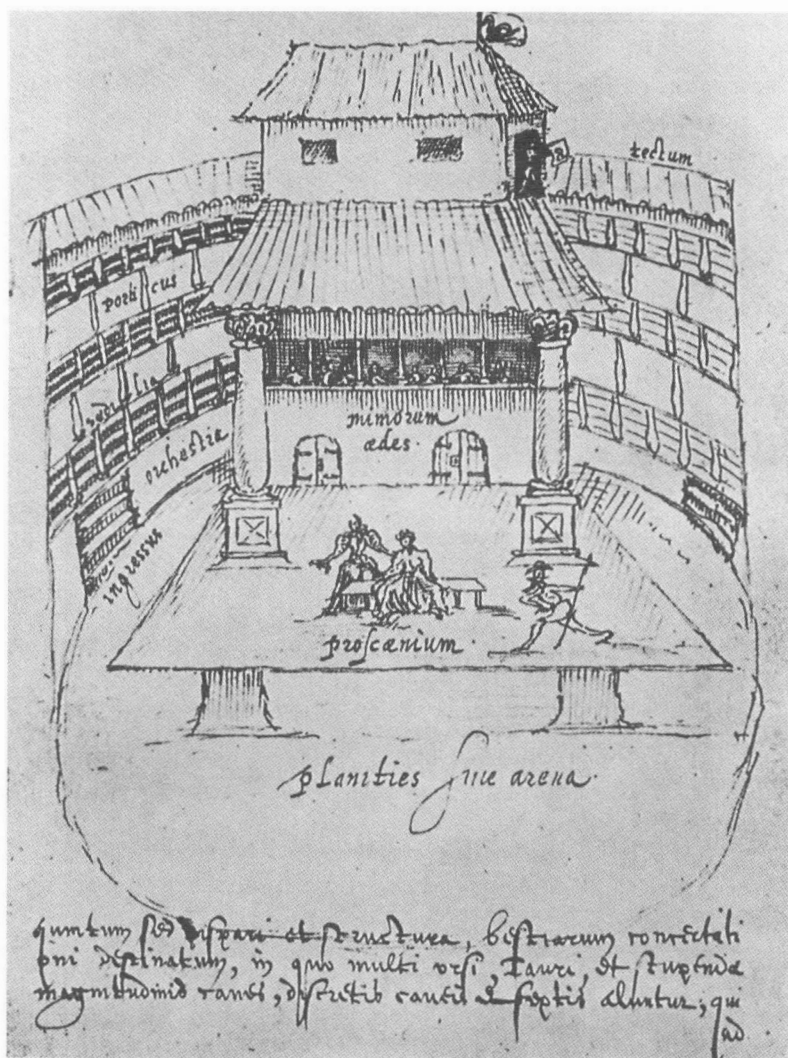 tectum
porticus
sedilia
orchestra
ingressus
mimorum
ædes.
proscænium
planities siue arena.
quintum sed dispari et structura, bestiarum concertati
oni destinatum, in quo multi vrsi, Tauri, et stupendæ
magnitudinis canes, discretis caueis & septis aluntur, qui
ad